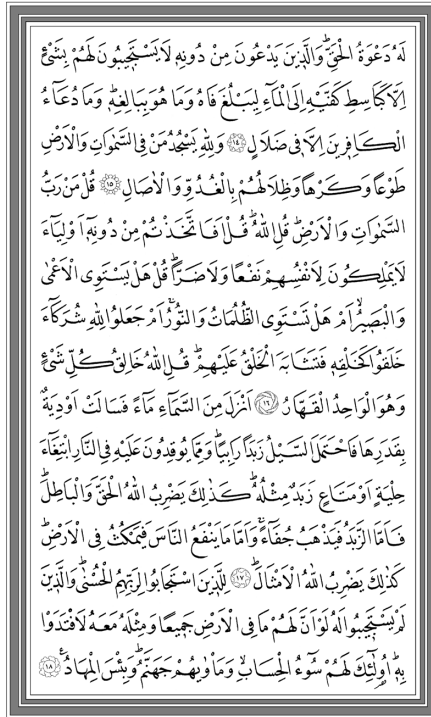 لَهُ دَعْوَةُ الْحَقِّۜ وَالَّذ۪ينَ يَدْعُونَ مِنْ دُونِه۪ لَا يَسْتَج۪يبُونَ لَهُمْ بِشَيْءٍ
اِلَّا كَبَاسِطِ كَفَّيْهِ اِلَى الْمَٓاءِ لِيَبْلُغَ فَاهُ وَمَا هُوَ بِبَالِغِه۪ۜ وَمَا دُعَٓاءُ
الْكَافِر۪ينَ اِلَّا ف۪ي ضَلَالٍ ﴿١٤﴾ وَلِلّٰهِ يَسْجُدُ مَنْ فِي السَّمٰوَاتِ وَالْاَرْضِ
طَوْعًا وَكَرْهًا وَظِلَالُهُمْ بِالْغُدُوِّ وَالْاٰصَالِ ﴿١٥﴾ قُلْ مَنْ رَبُّ
السَّمٰوَاتِ وَالْاَرْضِۜ قُلِ اللّٰهُۜ قُلْ اَفَاتَّخَذْتُمْ مِنْ دُونِه۪ٓ اَوْلِيَٓاءَ
لَا يَمْلِكُونَ لِاَنْفُسِهِمْ نَفْعًا وَلَا ضَرًّاۜ قُلْ هَلْ يَسْتَوِي الْاَعْمٰى
وَالْبَص۪يرُۙ اَمْ هَلْ تَسْتَوِي الظُّلُمَاتُ وَالنُّورُۚ اَمْ جَعَلُوا لِلّٰهِ شُرَكَٓاءَ
خَلَقُوا كَخَلْقِه۪ فَتَشَابَهَ الْخَلْقُ عَلَيْهِمْۜ قُلِ اللّٰهُ خَالِقُ كُلِّ شَيْءٍ
وَهُوَ الْوَاحِدُ الْقَهَّارُ ﴿١٦﴾ اَنْزَلَ مِنَ السَّمَٓاءِ مَٓاءً فَسَالَتْ اَوْدِيَةٌ
بِقَدَرِهَا فَاحْتَمَلَ السَّيْلُ زَبَدًا رَابِيًاۜ وَمِمَّا يُوقِدُونَ عَلَيْهِ فِي النَّارِ ابْتِغَٓاءَ
حِلْيَةٍ اَوْ مَتَاعٍ زَبَدٌ مِثْلُهُۜ كَذٰلِكَ يَضْرِبُ اللّٰهُ الْحَقَّ وَالْبَاطِلَۜ
فَاَمَّا الزَّبَدُ فَيَذْهَبُ جُفَٓاءًۚ وَاَمَّا مَا يَنْفَعُ النَّاسَ فَيَمْكُثُ فِي الْاَرْضِۜ
كَذٰلِكَ يَضْرِبُ اللّٰهُ الْاَمْثَالَۜ ﴿١٧﴾ لِلَّذ۪ينَ اسْتَجَابُوا لِرَبِّهِمُ الْحُسْنٰىۜ وَالَّذ۪ينَ
لَمْ يَسْتَج۪يبُوا لَهُ لَوْ اَنَّ لَهُمْ مَا فِي الْاَرْضِ جَم۪يعًا وَمِثْلَهُ مَعَهُ لَافْتَدَوْا
بِه۪ۜ اُو۬لٰٓئِكَ لَهُمْ سُٓوءُ الْحِسَابِ وَمَأْوٰيهُمْ جَهَنَّمُۜ وَبِئْسَ الْمِهَادُ۟ ﴿١٨﴾